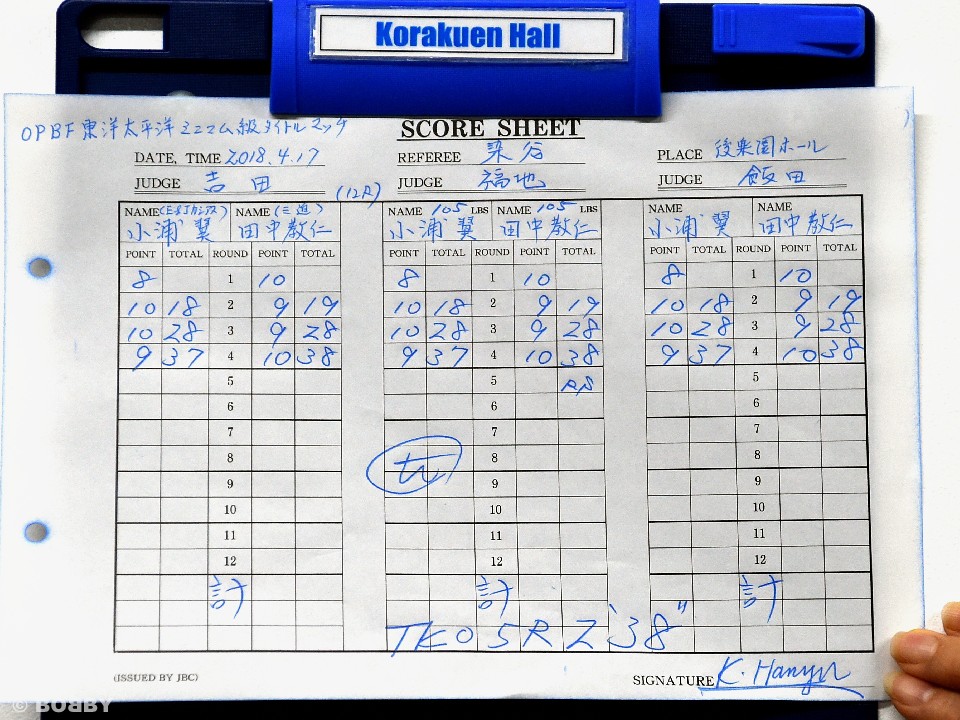 Korakuen Hall
OPBF東洋太平洋ミニマム級タイトルマッチ
SCORE SHEET
DATE, TIME 2018.4.17 REFEREE 染谷 PLACE 後楽園ホール
JUDGE 吉田 (12R) JUDGE 福地 JUDGE 飯田
NAME (E&Jカシアス) NAME (三迫) NAME 105 LBS NAME 105 LBS NAME NAME
小浦翼 田中教仁 小浦翼 田中教仁 小浦翼 田中教仁
POINT TOTAL ROUND POINT TOTAL POINT TOTAL ROUND POINT TOTAL POINT TOTAL ROUND POINT TOTAL
8 1 10 8 1 10 8 1 10
10 18 2 9 19 10 18 2 9 19 10 18 2 9 19
10 28 3 9 28 10 28 3 9 28 10 28 3 9 28
9 37 4 10 38 9 37 4 10 38 9 37 4 10 38
5 5 5
6 6 6
7 7 7
8 8 8
9 9 9
10 10 10
11 11 11
12 12 12
計 計 計
TKO 5R 2'38"
(ISSUED BY JBC) SIGNATURE K. Hanyu
© BOBBY